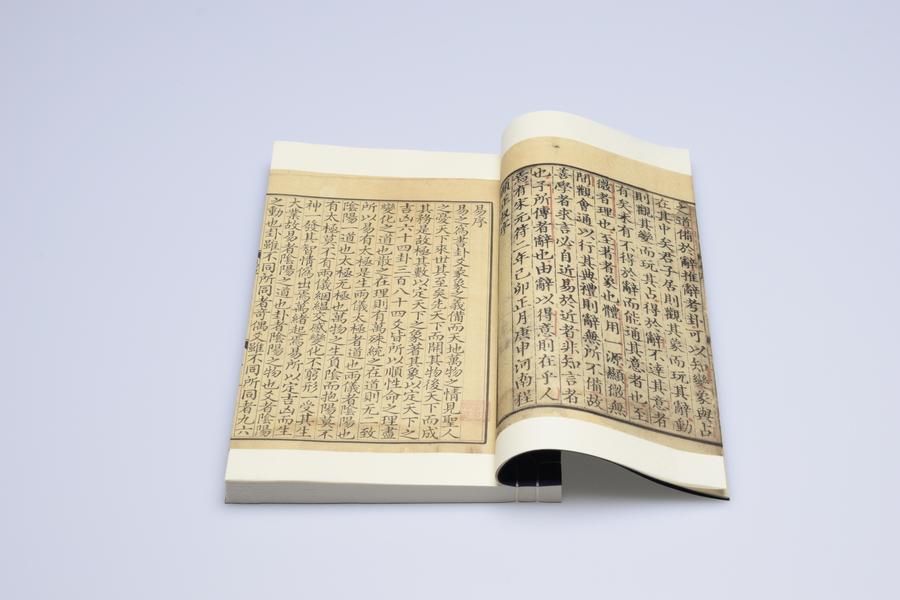 之道備於辭推辭考卦可以知變象與占
在其中矣君子居則觀其象而玩其辭動
則觀其變而玩其占得於辭不達其意者
有矣未有不得於辭而能通其意者也至
微者理也至著者象也體用一源顯微無
間觀會通以行其典禮則辭無所不備故
善學者求言必自近易於近者非知言者
也予所傳者辭也由辭以得意則在乎人
焉有宋元符二年己卯正月庚申河南程
頤正叔序
易序
易之爲書卦爻彖象之義備而天地萬物之情見聖人
之憂天下來世其至矣先天下而開其物後天下而成
其務是故極其數以定天下之象著其象以定天下之
吉凶六十四卦三百八十四爻皆所以順性命之理盡
變化之道也散之在理則有萬殊統之在道則无二致
所以易有太極是生兩儀太極者道也兩儀者陰陽也
陰陽一道也太極无極也萬物之生負陰而抱陽莫不
有太極莫不有兩儀絪縕交感變化不窮形一受其生
神一發其智情僞出焉萬緒起焉易所以定吉凶而生
大業故易者陰陽之道也卦者陰陽之物也爻者陰陽
之動也卦雖不同所同者奇偶爻雖不同所同者九六